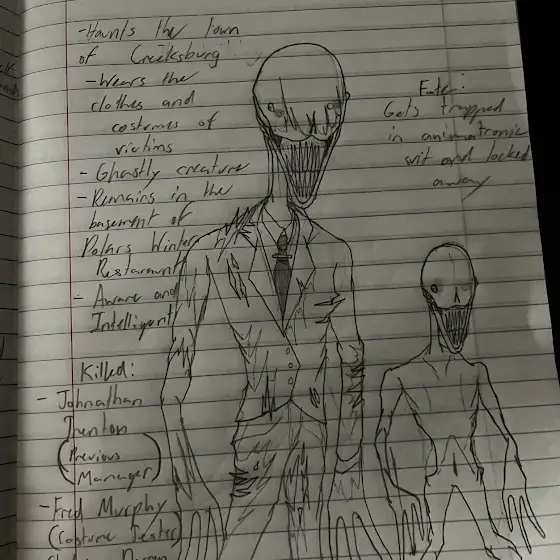 -Haunts the town
of Creeksburg
-Wears the
clothes and
costumes of
victims
- Ghastly creature
- Remains in the
basement of
Polars Winter
Restaraunt
- Aware and
Intelligent
Killed:
- Johnathan
Trenton
(Previous
Manager)
- Fred Murphy
(Costume Tester)
Fate:
Gets trapped
in animatronic
suit and locked
away